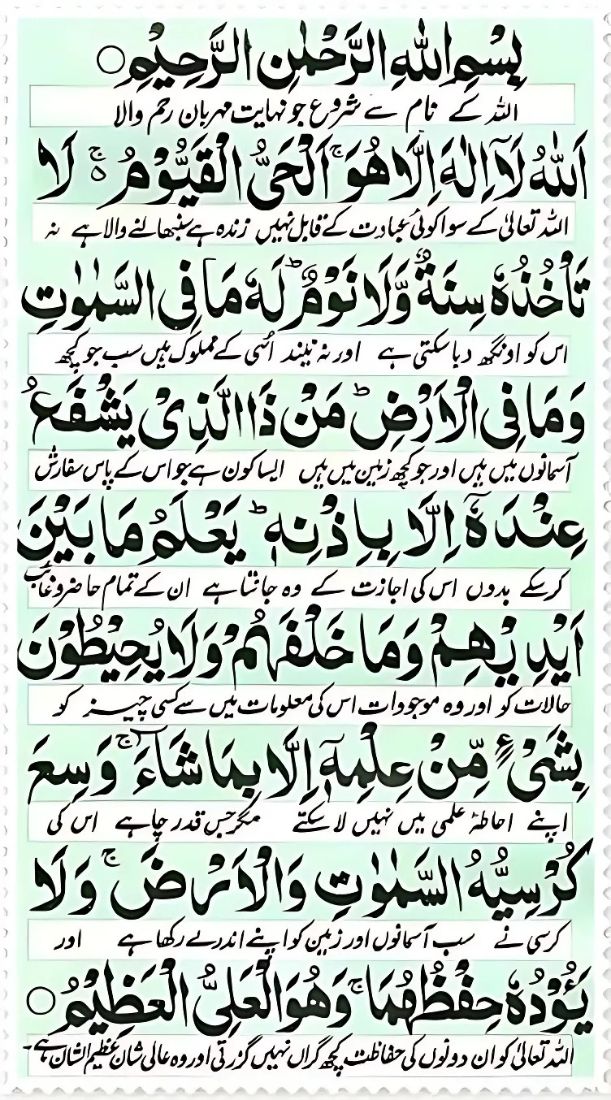 بِسْمِ اللهِ الرَّحْمٰنِ الرَّحِيْمِ ○
اللہ کے نام سے شروع جو نہایت مہربان رحم والا
اَللهُ لَاۤ اِلٰهَ اِلَّا هُوَ ۚ اَلْحَيُّ الْقَيُّوْمُ ۚ۬ لَا
اللہ تعالیٰ کے سوا کوئی عبادت کے قابل نہیں زندہ ہے سنبھالنے والا ہے نہ
تَاْخُذُهٗ سِنَةٌ وَّلَا نَوْمٌ ؕ لَهٗ مَا فِي السَّمٰوٰتِ
اس کو اونگھ دبا سکتی ہے اور نہ نیند اسی کے مملوک ہیں سب جو کچھ
وَمَا فِي الْاَرْضِ ؕ مَنْ ذَا الَّذِيْ يَشْفَعُ
آسمانوں میں ہیں اور جو کچھ زمین میں ہیں ایسا کون ہے جو اس کے پاس سفارش
عِنْدَهٗۤ اِلَّا بِاِذْنِهٖ ؕ يَعْلَمُ مَا بَيْنَ
کرسکے بدوں اس کی اجازت کے وہ جانتا ہے ان کے تمام حاضر و غائب
اَيْدِيْهِمْ وَمَا خَلْفَهُمْ وَلَا يُحِيْطُوْنَ
حالات کو اور وہ موجودات اس کی معلومات میں سے کسی چیز کو
بِشَيْءٍ مِّنْ عِلْمِهٖۤ اِلَّا بِمَا شَآءَ ۚ وَسِعَ
اپنے احاطۂ علمی میں نہیں لا سکتے مگر جس قدر چاہے اس کی
كُرْسِيُّهُ السَّمٰوٰتِ وَالْاَرْضَ ۚ وَلَا
کرسی نے سب آسمانوں اور زمین کو اپنے اندر لے رکھا ہے اور
يَـُٔوْدُهٗ حِفْظُهُمَا ۚ وَهُوَ الْعَلِيُّ الْعَظِيْمُ ○
اللہ تعالیٰ کو ان دونوں کی حفاظت کچھ گراں نہیں گزرتی اور وہ عالی شان عظیم الشان ہے۔